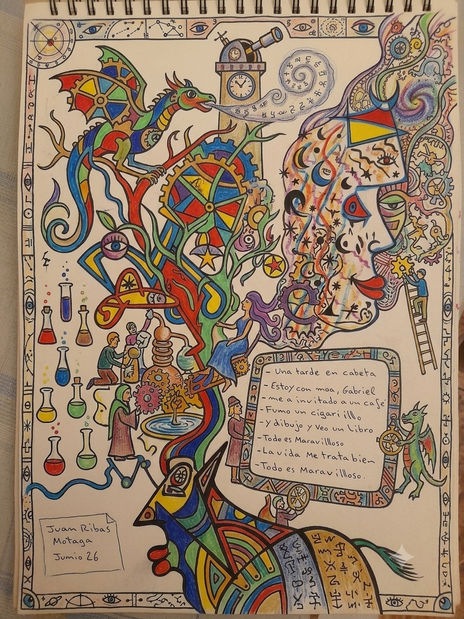 - Una tarde en cabeta
- Estoy con moa, Gabriel
- me a invitado a un cafe
- Fumo un cigarillo
y dibujo y veo un libro
- Todo es Maravilloso
- La vida Me trata bien
- Todo es Maravilloso.
Juan Ribas
Motaga
Junio 26